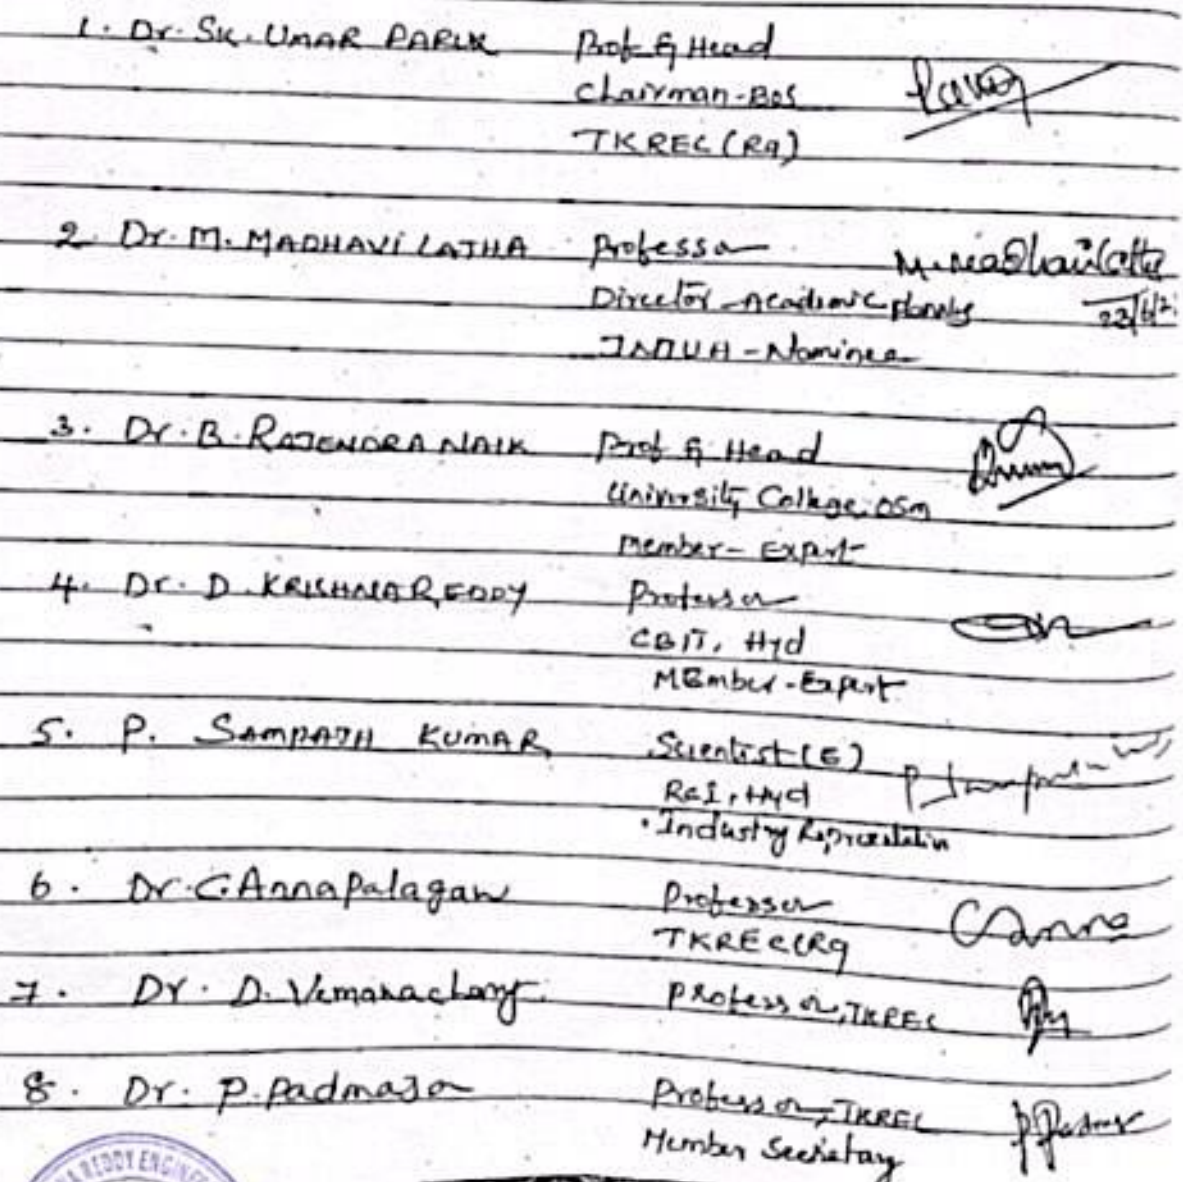 1. Dr. SK. UMAR PARUK Prof & Head
Chairman-BOS
TKREC (R9)
2. Dr. M. MADHAVI LATHA Professor M. Madhavi Latha
Director-Academic Planning 23/6/2
JNTUH - Nominee
3. Dr. B. RAJENDRA NAIK Prof & Head
University College, OSM
Member - Expert
4. Dr. D. KRISHNA REDDY Professor
CBIT, Hyd
MEmber - Expert
5. P. SAMPATH KUMAR Scientist (E)
RCI, Hyd
Industry Representation
6. Dr. C. Annapalagan Professor
TKREC (R9
7. Dr. D. Vemanachary Professor, TKREC
8. Dr. P. Padmaja Professor, TKREC
Member Secretary
A REDDY ENGINE